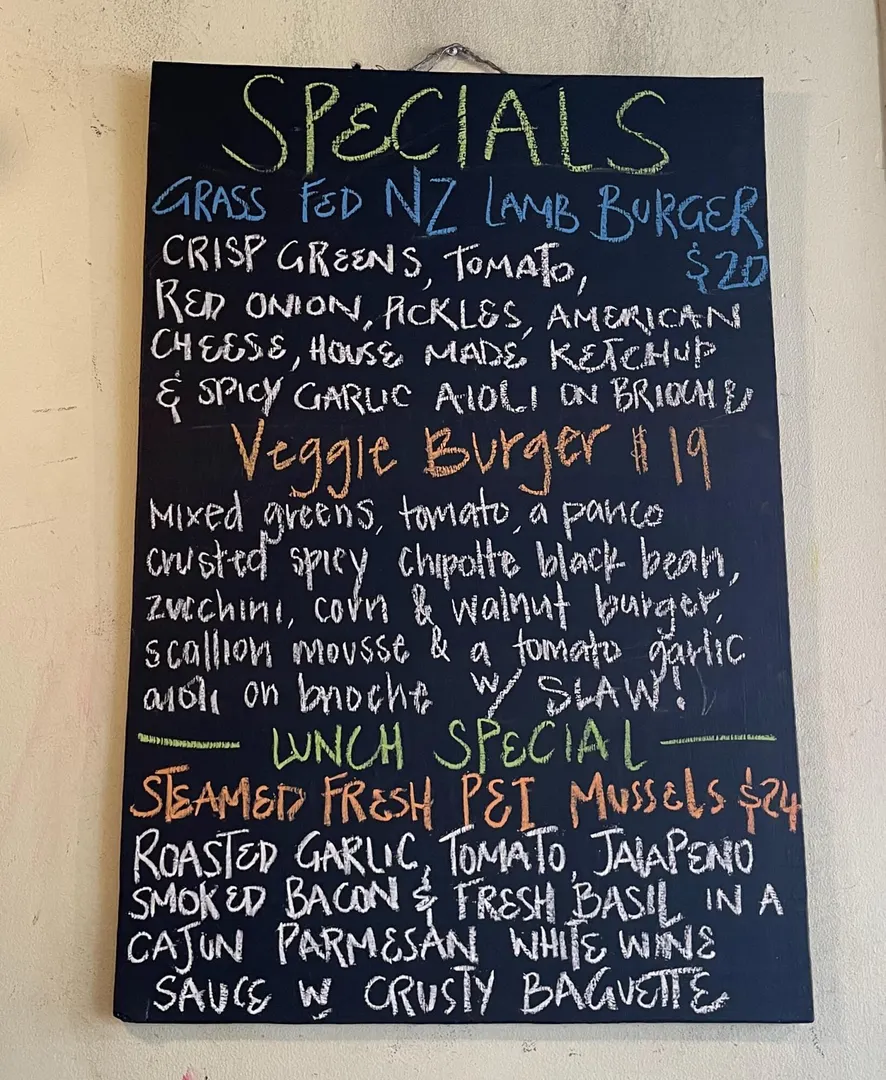 SPECIALS
GRASS FED NZ LAMB BURGER
CRISP GREENS, TOMATO, $20
RED ONION, PICKLES, AMERICAN
CHEESE, HOUSE MADE KETCHUP
& SPICY GARLIC AIOLI ON BRIOCHE
Veggie Burger $19
Mixed greens, tomato, a panco
crusted spicy chipotle black bean,
zucchini, corn & walnut burger,
scallion mousse & a tomato garlic
aioli on brioche w/ SLAW!
LUNCH SPECIAL
STEAMED FRESH PEI MUSSELS $24
ROASTED GARLIC, TOMATO, JALAPENO
SMOKED BACON & FRESH BASIL IN A
CAJUN PARMESAN WHITE WINE
SAUCE W CRUSTY BAGUETTE